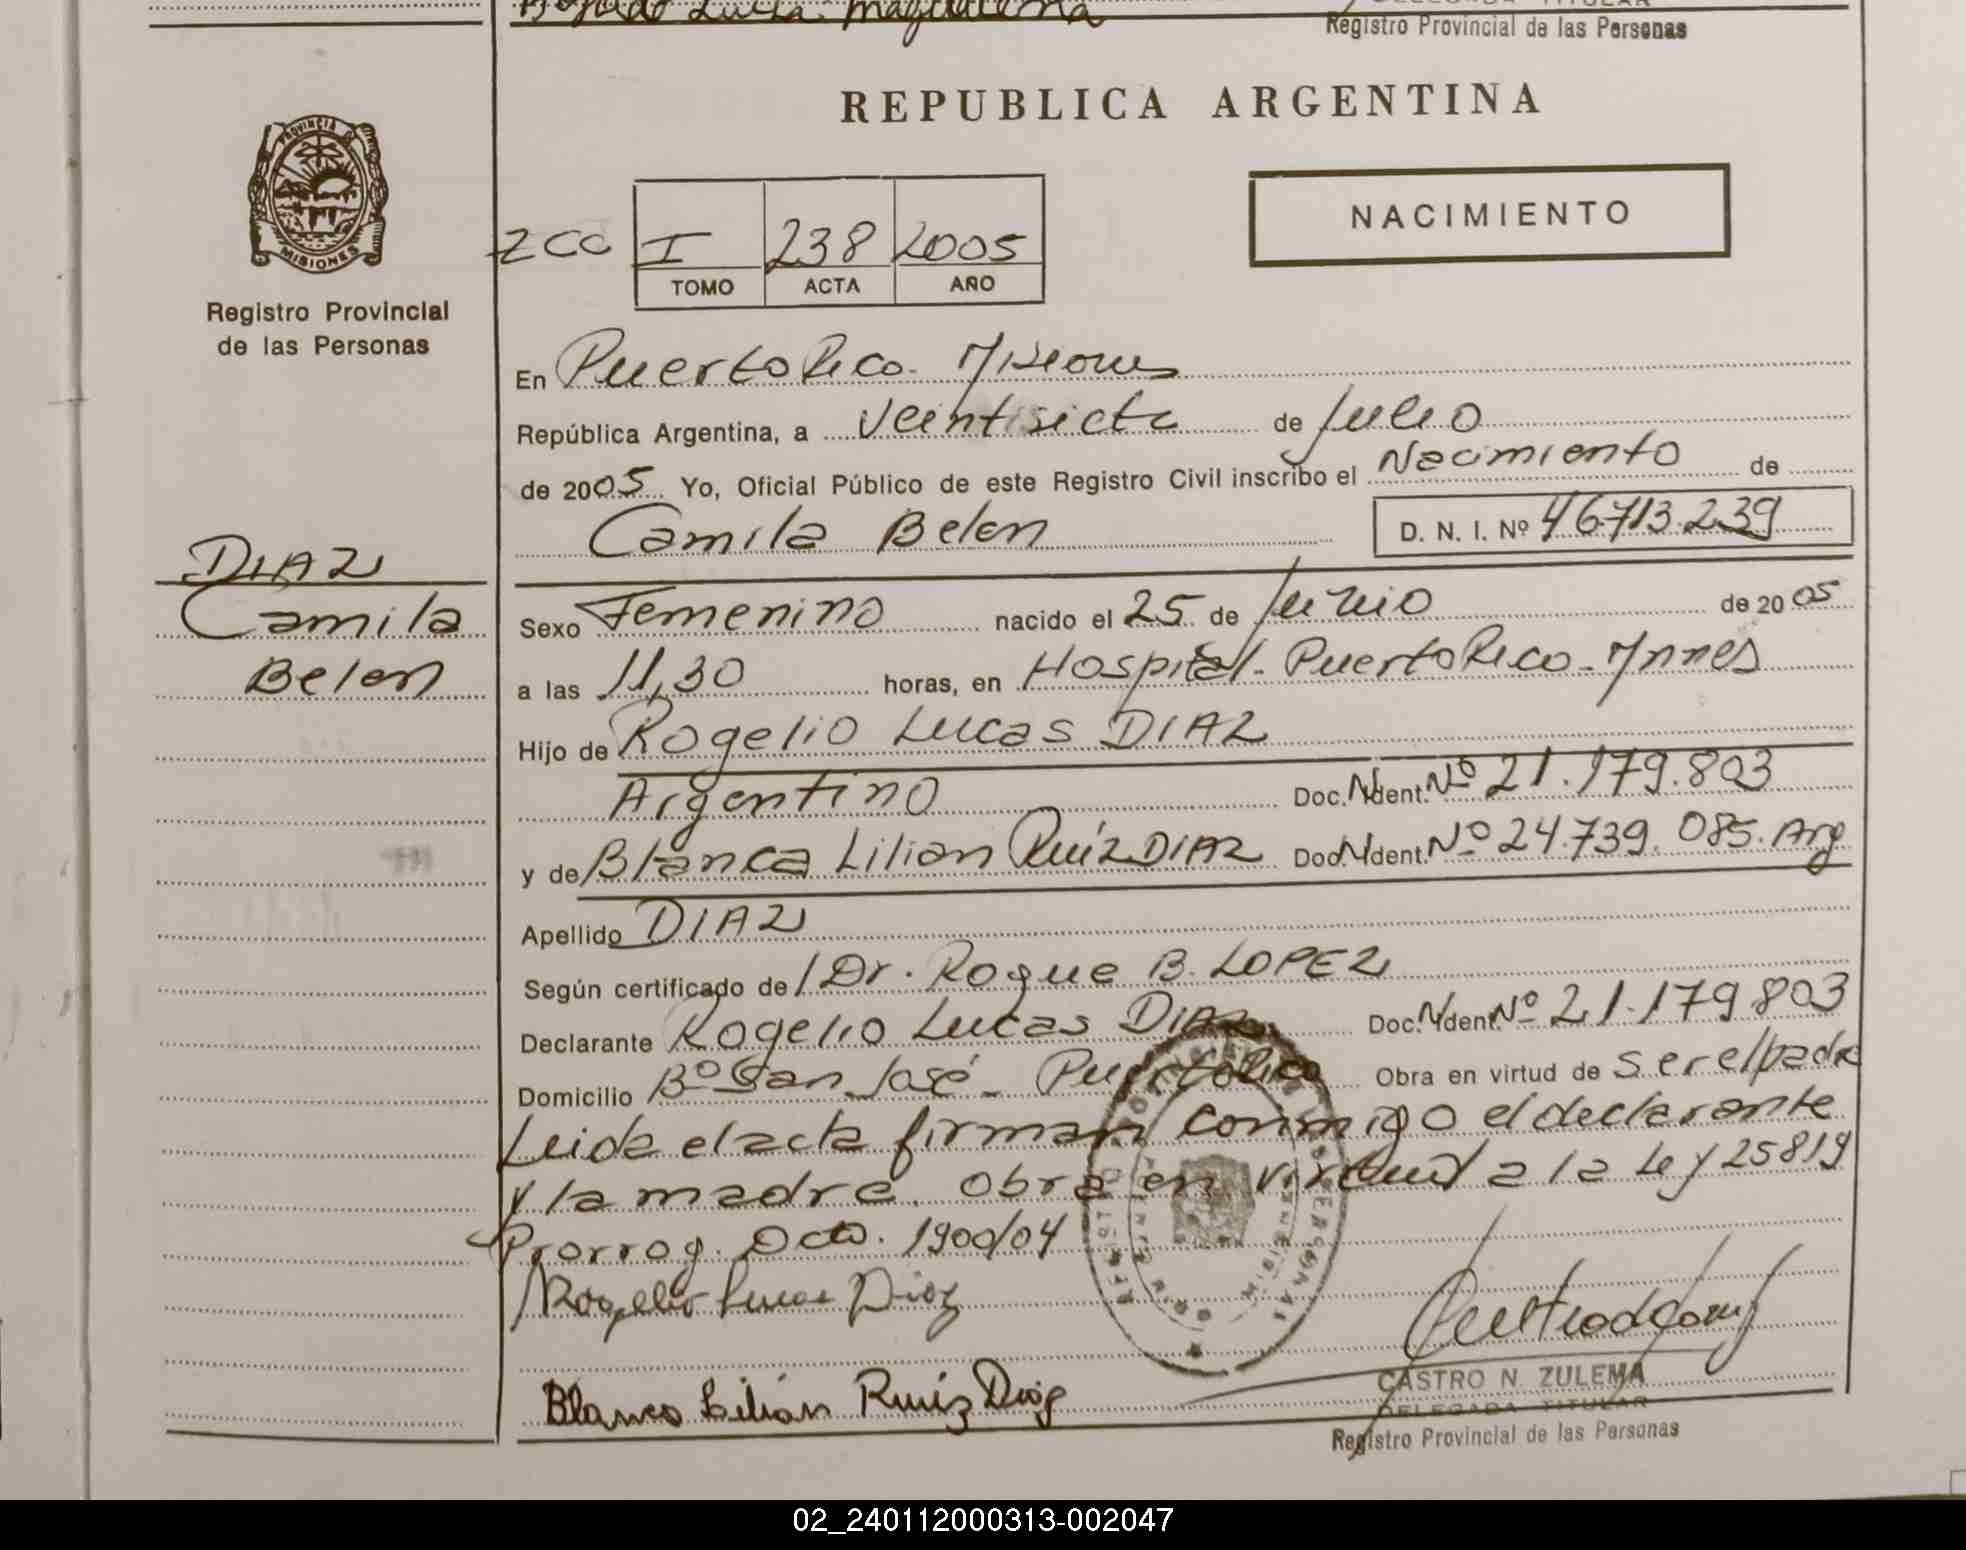 Registro Provincial de las Personas
REPUBLICA ARGENTINA
PROVINCIA DE
MISIONES
Registro Provincial
de las Personas
NACIMIENTO
I 238 2005
TOMO ACTA AÑO
En Puerto Rico. Misiones
República Argentina, a Veintisiete de Julio
de 2005 Yo, Oficial Público de este Registro Civil inscribo el Nacimiento de
Camila Belen D. N. I. Nº 46.713.239
DIAZ
Camila
Belen
Sexo Femenino nacido el 25 de Junio de 2005
a las 11,30 horas, en Hospital - Puerto Rico - Mnes
Hijo de Rogelio Lucas DIAZ
Argentino Doc. N. Ident. Nº 21.179.803
y de Blanca Lilian Ruíz DIAZ Doc. N. Ident. Nº 24.739.085. Arg
Apellido DIAZ
Según certificado de / Dr. Roque B. LOPEZ
Declarante Rogelio Lucas DIAZ Doc. N. Ident. Nº 21.179.803
Domicilio Bº San José - Puerto Rico Obra en virtud de ser el padre
Leida el acta firman conmigo el declarante
y la madre. Obra en virtud a la Ley 25819
Prorrog. Dcto. 1900/04
Rogelio Lucas Diaz
Blanca Lilián Ruíz Diaz
CASTRO N. ZULEMA
DELEGADA TITULAR
Registro Provincial de las Personas
02_240112000313-002047